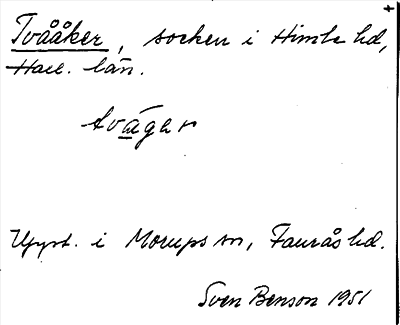 Tvååker, socken i Himle hd,
Hall. län.
tvä́gar
Uppt. i Morups sn, Faurås hd.
Sven Benson 1951